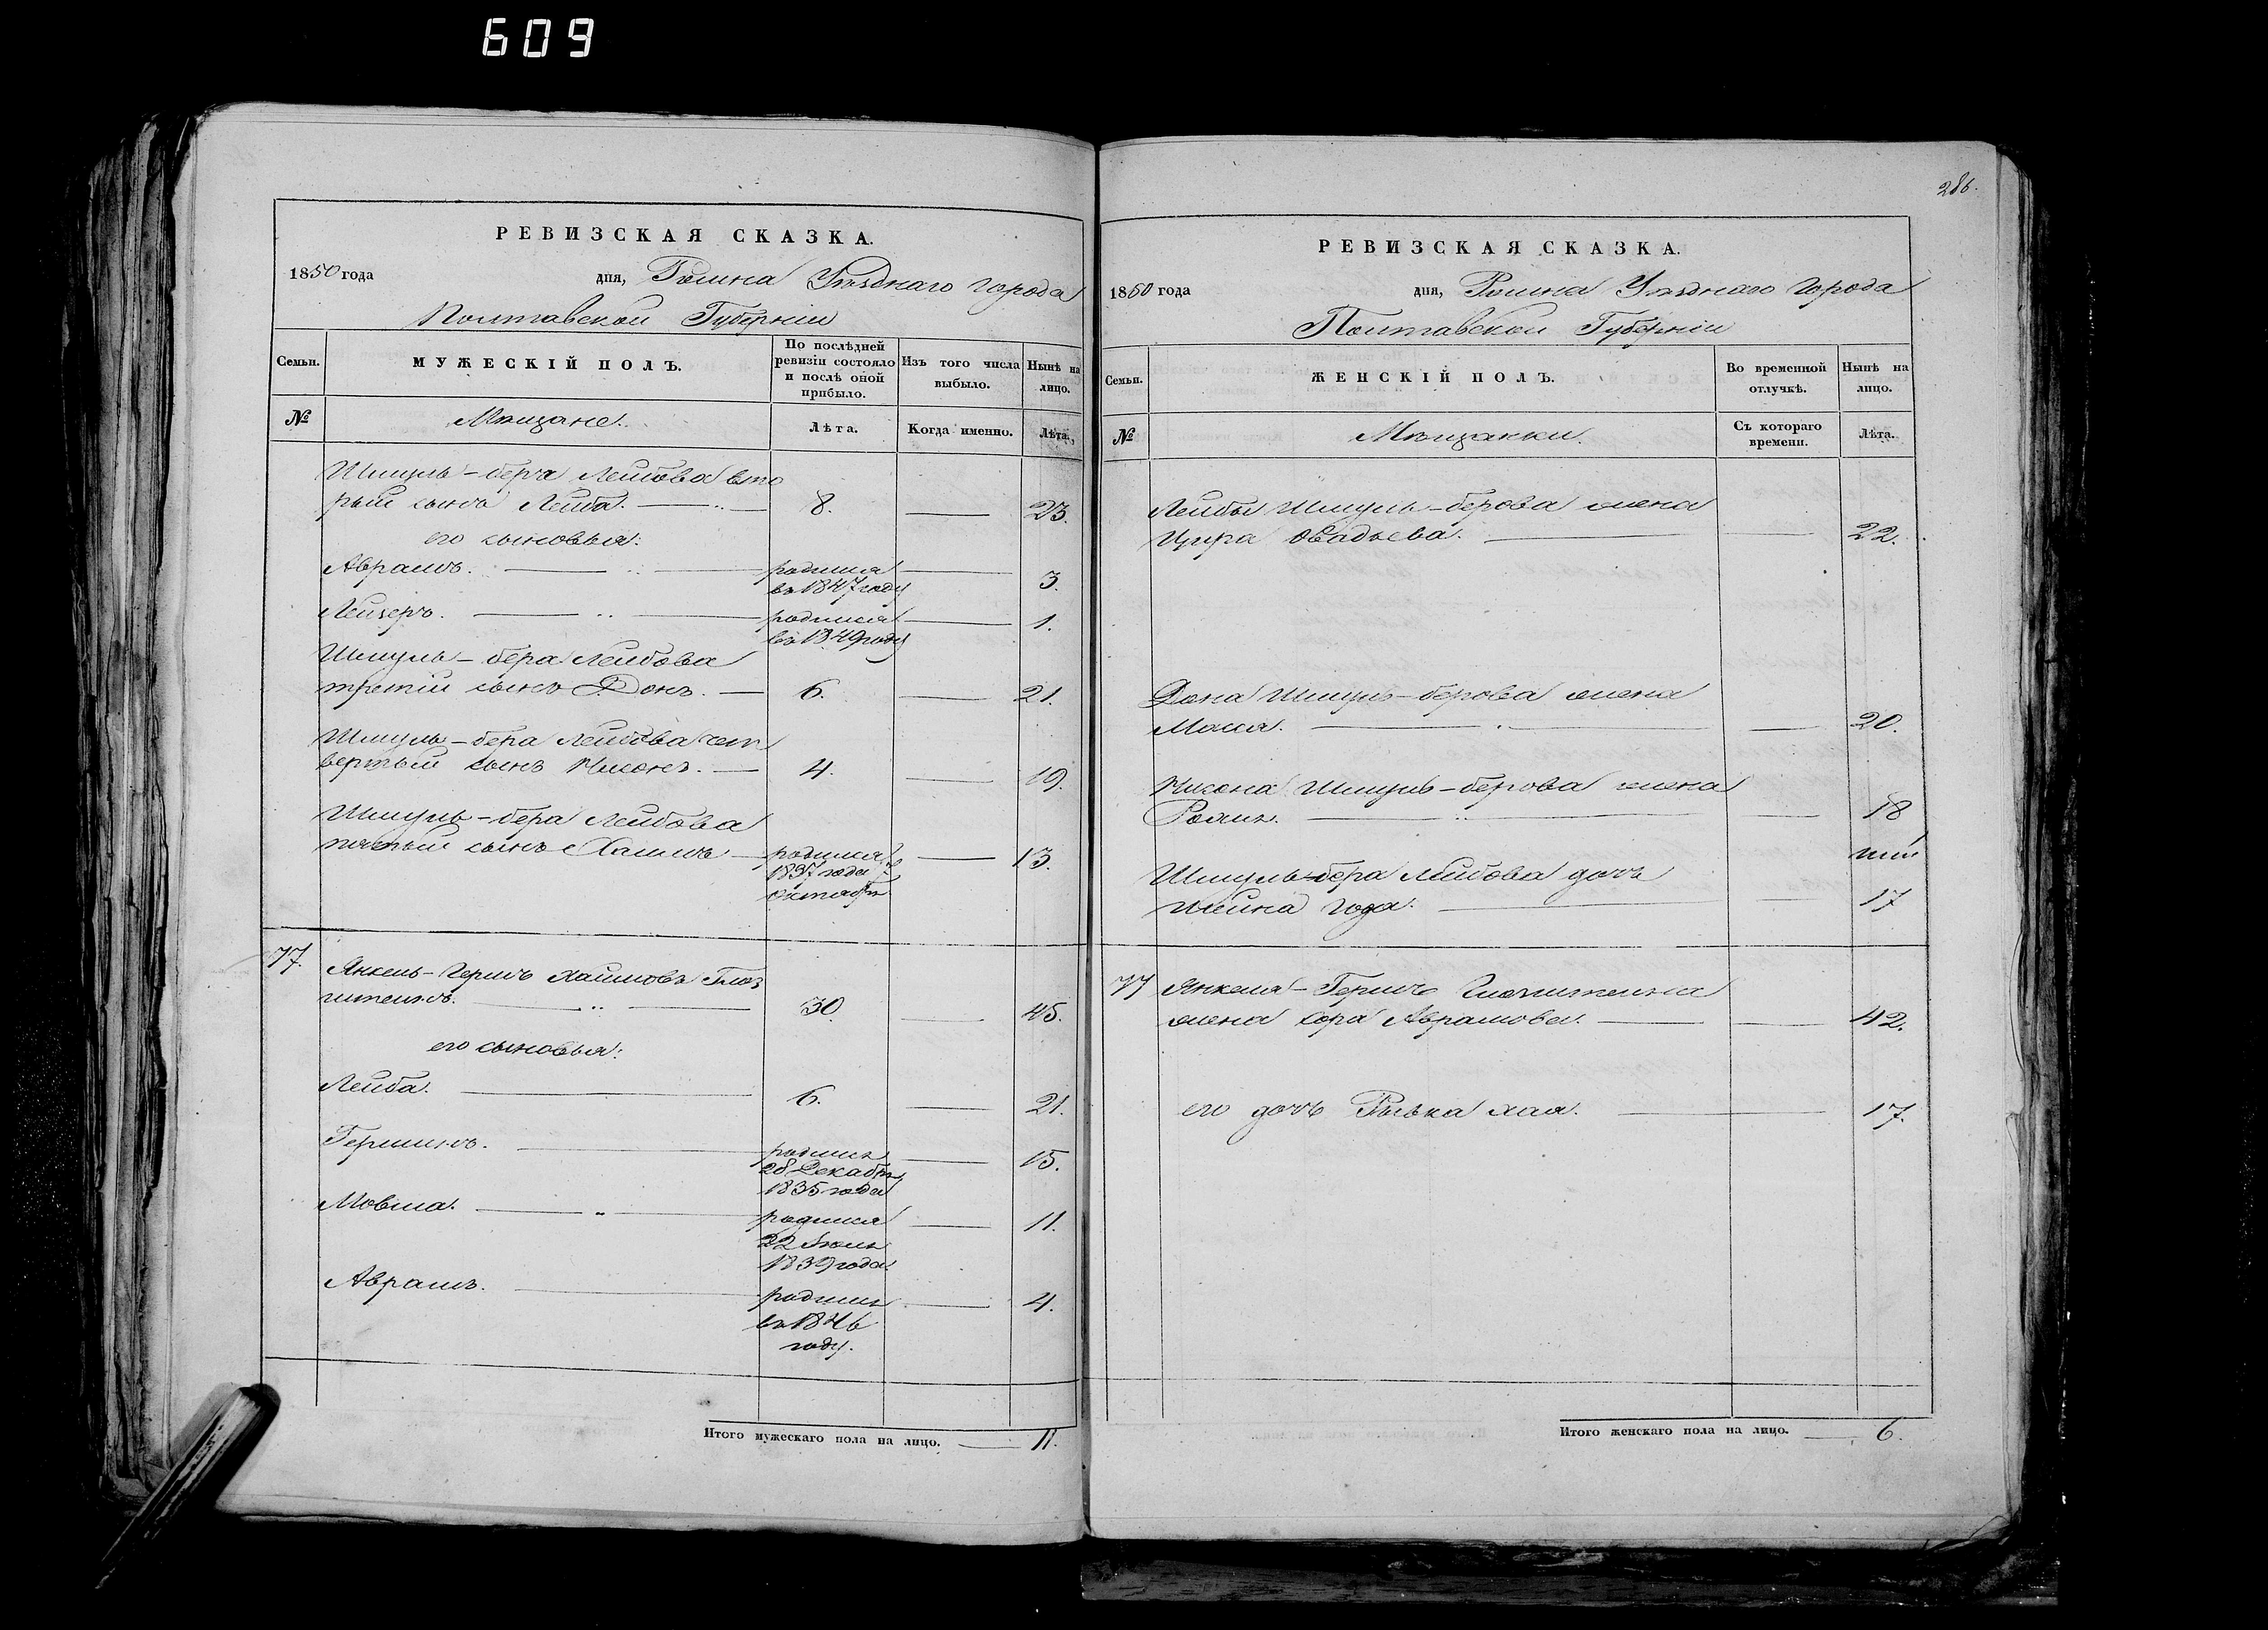 609
РЕВИЗСКАЯ СКАЗКА.
1850 года дня, Ромна Уѣзднаго города
Полтавской Губерніи
Семьи. МУЖЕСКІЙ ПОЛЪ. По послѣдней ревизіи состояло и послѣ оной прибыло. Изъ того числа выбыло. Нынѣ на лицо.
№ Мѣщане. Лѣта. Когда именно. Лѣта.
Шмуль-бера Лейбова вто
рый сынъ Лейба. 8. 23.
его сыновья:
Абрамъ. родился въ 1847 году 3.
Лейзеръ. родился въ 1849 году 1.
Шмуль-бера Лейбова
третій сынъ Донъ. 6. 21.
Шмуль-бера Лейбова чет
вертый сынъ 4. 19.
Шмуль-бера Лейбова
пятый сынъ Хаимъ родился 1837 года октября 13.
77. Янкель-Гершъ Хаимовъ
30. 45.
его сыновья:
Лейба. 6. 21.
родился 28 Декабря 1835 года 15.
Мовша. родился 22 1839 года 11.
Абрамъ. родился въ 1846 году. 4.
Итого мужескаго пола на лицо. 11.
286.
РЕВИЗСКАЯ СКАЗКА.
1850 года дня, Ромна Уѣзднаго Города
Полтавской Губерніи
Семьи. ЖЕНСКІЙ ПОЛЪ. Во временной отлучкѣ. Нынѣ на лицо.
№ Мѣщанки. Съ котораго времени. Лѣта.
Лейбы Шмуль-берова жена
Цира Овадьева. 22.
Дона Шмуль-берова жена
Масся. 20.
Шмуль-берова жена
18
Шмуль-бера Лейбова дочь
Шейна 17
77 Янкеля-Гершъ
жена Сора Абрамова. 42.
его дочь Рывка Хая. 17.
Итого женскаго пола на лицо. 6.